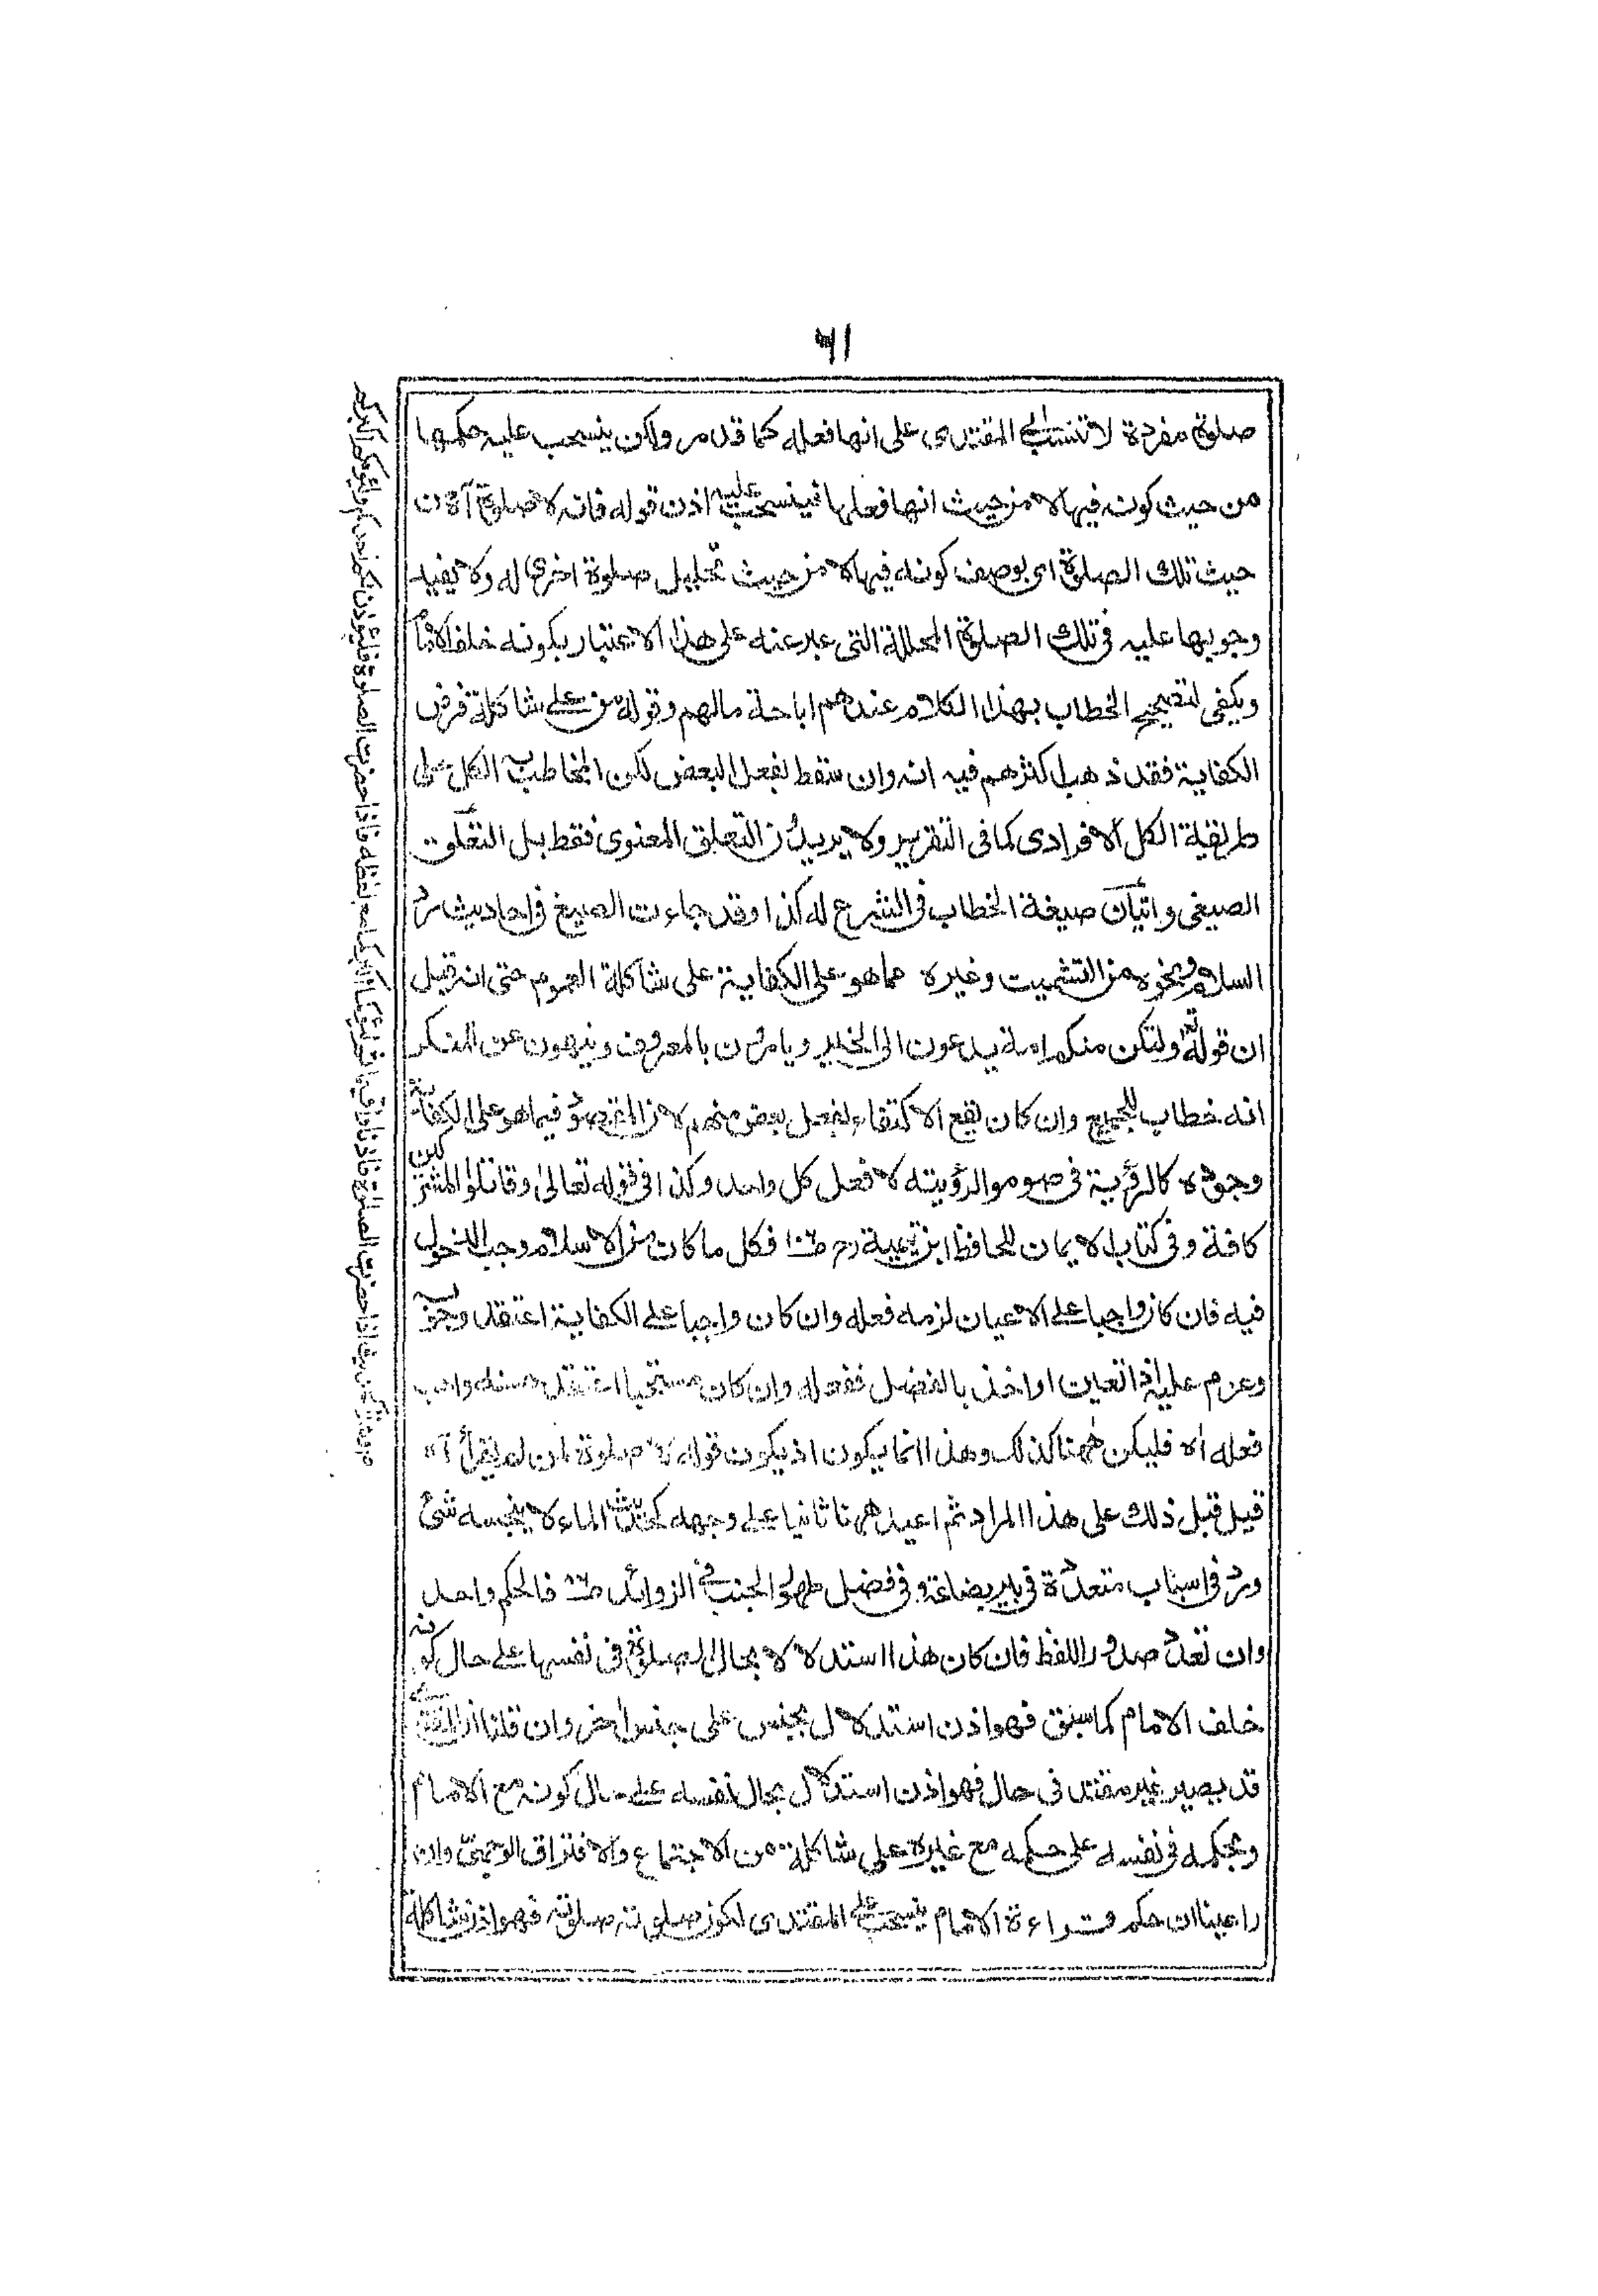 ٦١
صلوة مفردة لا تنسب الى المقتدى على انها فعله كما قد مر ولكن ينسحب عليه حكمها
من حيث كونه فيها لا من حيث انها فعلها فينسحب عليه اذن قوله فانه لا صلوة آه من
حيث تلك الصلوة اى بوصف كونه فيها لا من حيث تحليل صلوة اخرى له ولا يفيد
وجوبها عليه فى تلك الصلوة المحللة التى عبر عنه على هذا الاعتبار بكونه خلف الامام
ويكفى لتصحيح الخطاب بهذا الكلام عندهم اباحة مالهم وقوله من على شاكلة فرض
الكفاية فقد ذهب اكثرهم فيه انه وان سقط بفعل البعض لكن المخاطب به الكل على
طريقة الكل الافرادى كما فى التقرير ولا يريدون التعلق المعنوى فقط بل التعلق
الصيغى واتيان صيغة الخطاب فى الشرع له كذا وقد جاءت الصيغ فى احاديث رد
السلام ونحوه من التشميت وغيره مما هو على الكفاية على شاكلة العموم حتى انه قيل
ان قوله تعـ ولتكن منكم امة يدعون الى الخير ويامرون بالمعروف وينهون عن المنكر
انه خطاب للجميع وان كان يقع الاكتفاء بفعل بعض منهم لان المقصود فيما هو على الكفاية
وجوده كالرؤية فى صوموا لرؤيته لا فعل كل واحد وكذا فى قوله تعالى وقاتلوا المشركين
كافة وفى كتاب الايمان للحافظ ابن تيمية رح فكل ما كان من الاسلام وجب الدخول
فيه فان كان واجبا على الاعيان لزمه فعله وان كان واجبا على الكفاية اعتقد وجوبه
وعزم عليه اذا تعين او اخذ بالفضل ففعله وان كان مستحبا اعتقد حسنه واحب
فعله اه فليكن ههنا كذلك وهذا انما يكون اذ يكون قوله لا صلوة لمن لم يقرأ آه
قيل قبل ذلك على هذا المراد ثم اعيد ههنا ثانيا على وجهه كحديث الماء لا ينجسه شئ
ورد فى اسباب متعددة فى بير بضاعة وفى فضل طهور الجنب فى الزوائد فالحكم واحد
وان تعدد صدور اللفظ فان كان هذا استدلالا بحال الصلوة فى نفسها على حال كونه
خلف الامام كما سبق فهو اذن استدلال بجنس على جنس اخر وان قلنا ان المقتدى
قد يصير غير مقتد فى حال فهو اذن استدلال بحال نفسه على حال كونه مع الامام
وبحكمه فى نفسه على حكمه مع غيره على شاكلة من الاجتماع والافتراق الوجهتى وان
راعينا ان حكم قراءة الامام ينسحب على المقتدى لكون صلوته صلوته فهو اذن شاكلة